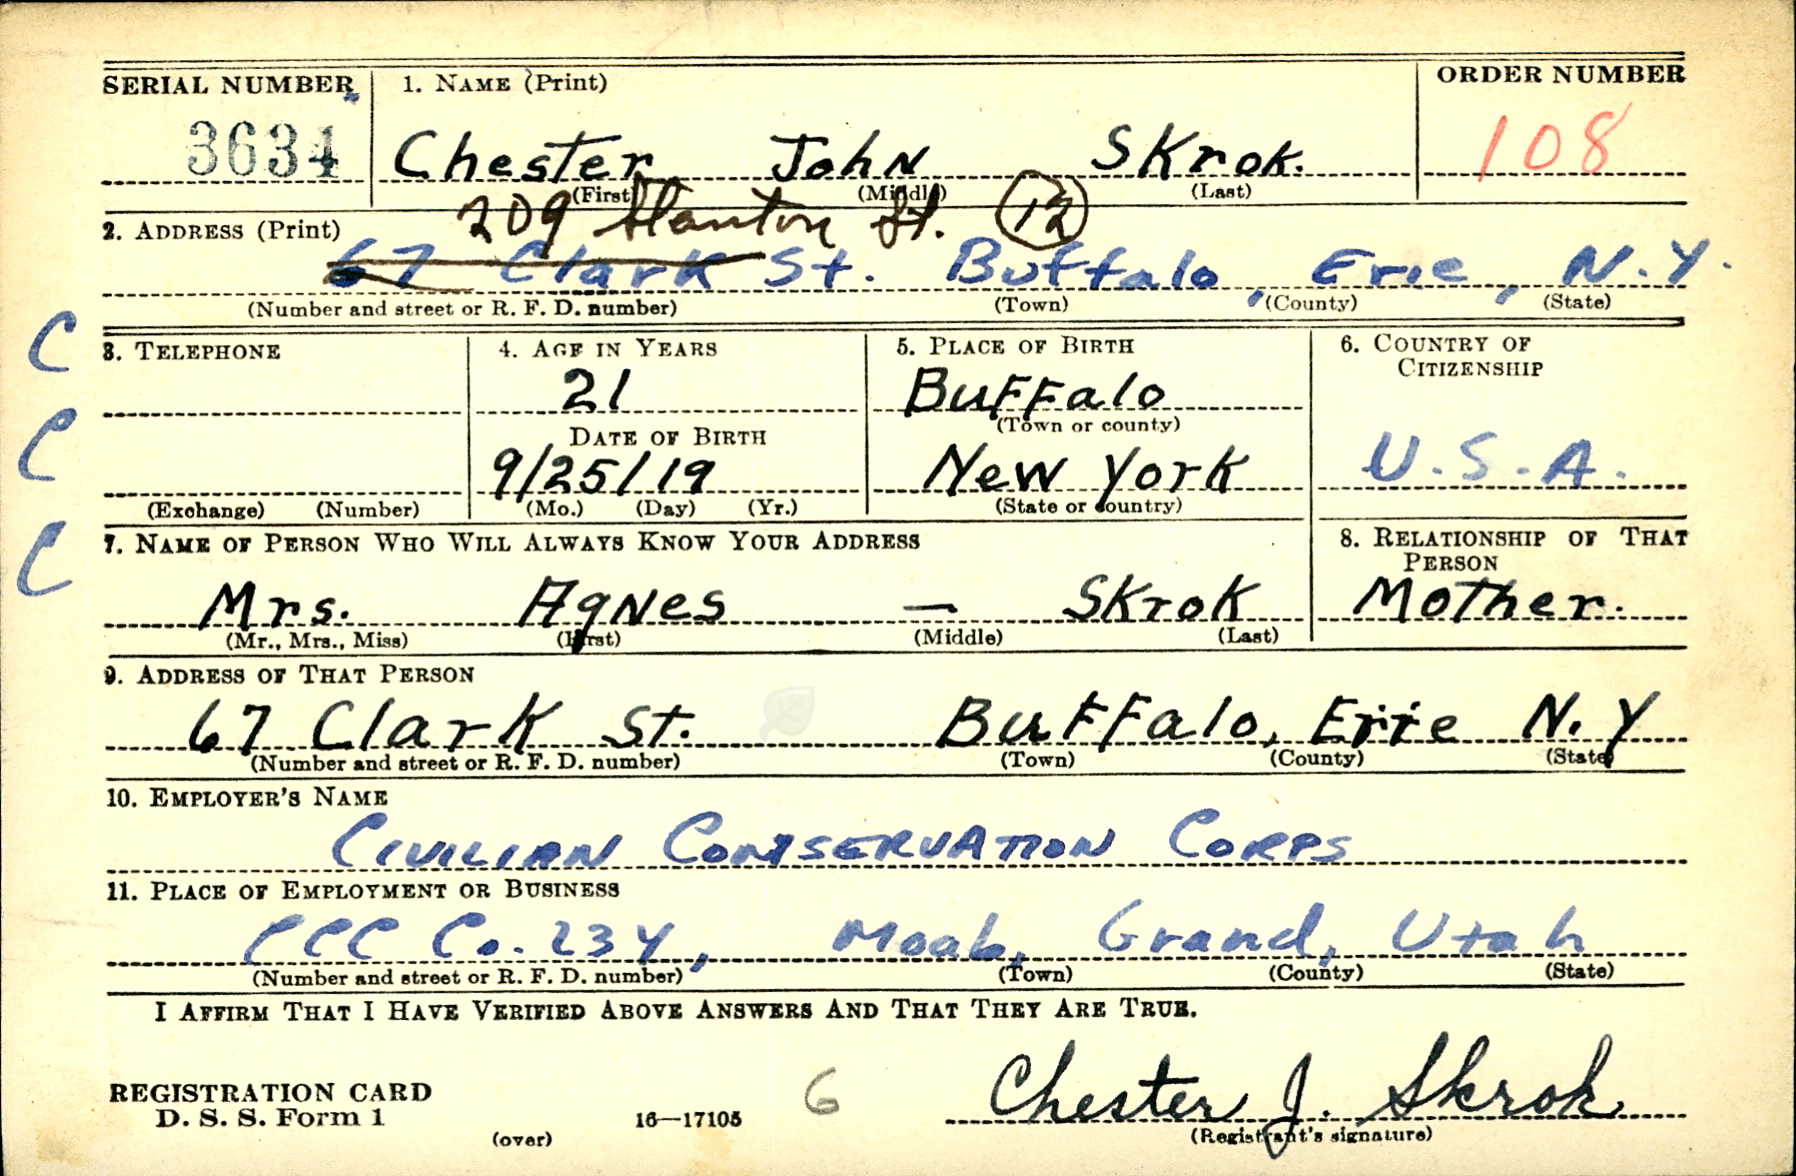 SERIAL NUMBER 1. NAME (Print) ORDER NUMBER
3634 Chester John Skrok. 108
(First) (Middle) (Last)
209 Stanton St. 12
2. ADDRESS (Print)
67 Clark St. Buffalo, Erie, N.Y.
(Number and street or R. F. D. number) (Town) (County) (State)
C
3. TELEPHONE 4. AGE IN YEARS 5. PLACE OF BIRTH 6. COUNTRY OF CITIZENSHIP
21 Buffalo
(Town or county)
DATE OF BIRTH
C
9/25/19 New York U.S.A.
(Exchange) (Number) (Mo.) (Day) (Yr.) (State or country)
7. NAME OF PERSON WHO WILL ALWAYS KNOW YOUR ADDRESS 8. RELATIONSHIP OF THAT PERSON
C
Mrs. Agnes — Skrok Mother.
(Mr., Mrs., Miss) (First) (Middle) (Last)
9. ADDRESS OF THAT PERSON
67 Clark St. Buffalo, Erie N.Y
(Number and street or R. F. D. number) (Town) (County) (State)
10. EMPLOYER'S NAME
CIVILIAN CONSERVATION CORPS
11. PLACE OF EMPLOYMENT OR BUSINESS
CCC Co. 234, Moab, Grand, Utah
(Number and street or R. F. D. number) (Town) (County) (State)
I AFFIRM THAT I HAVE VERIFIED ABOVE ANSWERS AND THAT THEY ARE TRUE.
REGISTRATION CARD
D. S. S. Form 1 16—17105 G Chester J. Skrok
(over) (Registrant's signature)